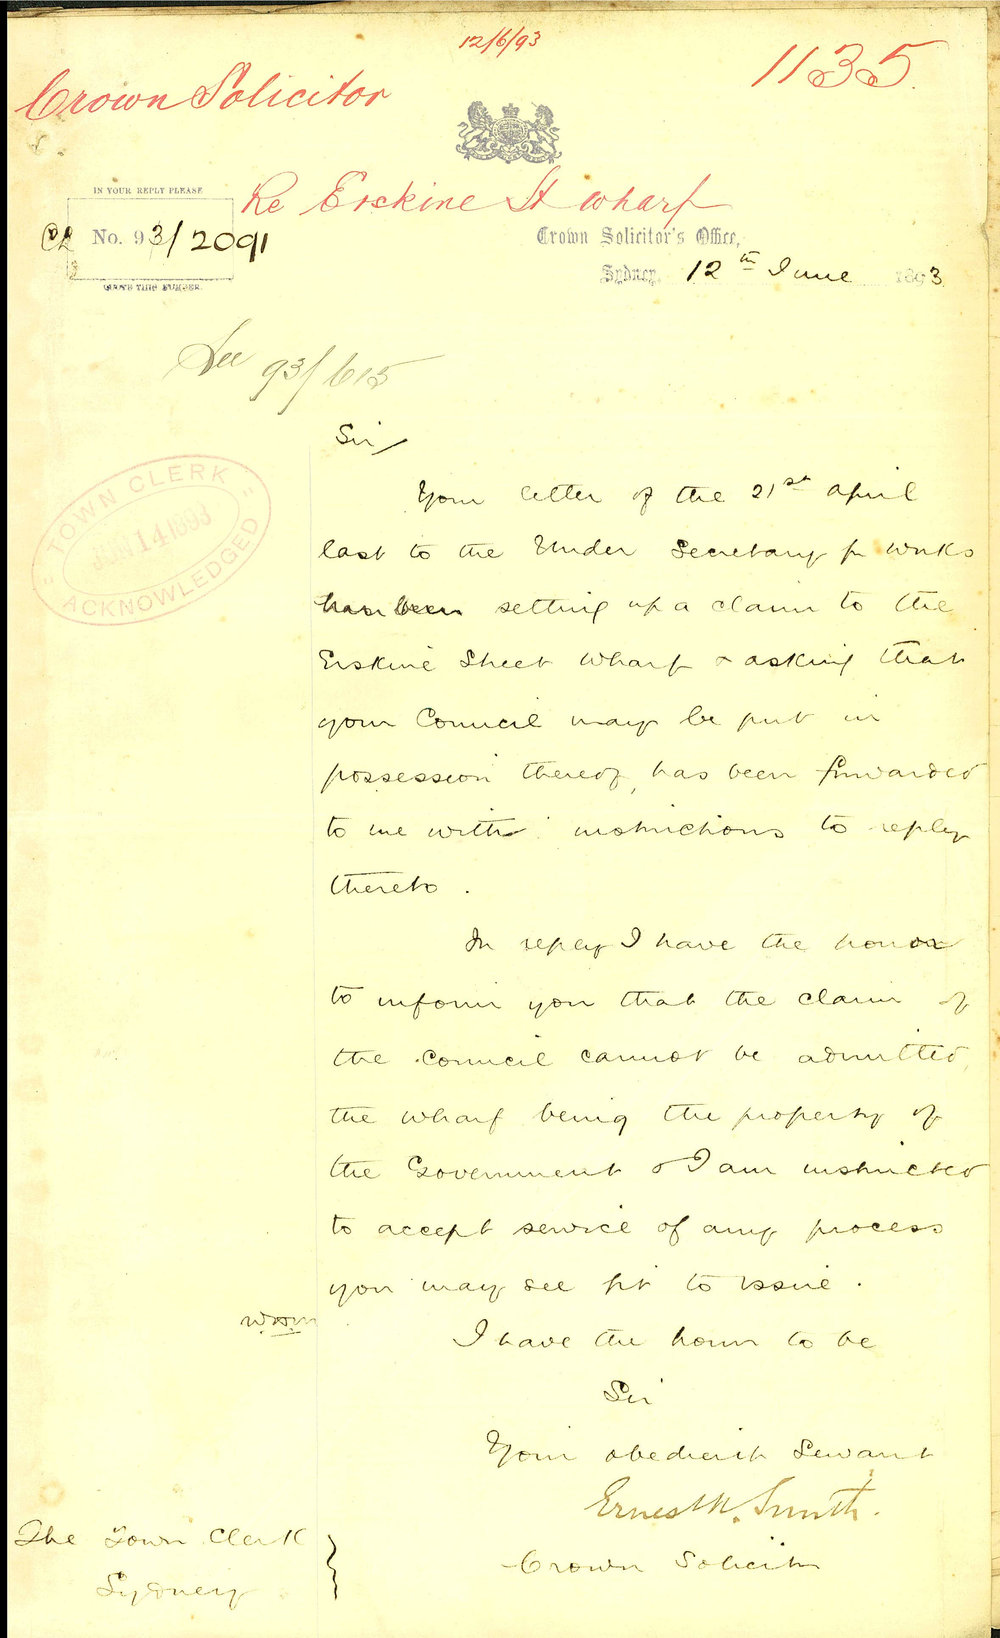 12/6/93
1135
Crown Solicitor
Re Erskine St Wharf
IN YOUR REPLY PLEASE
No. 93/2091
QUOTE THIS NUMBER.
Crown Solicitor's Office,
Sydney, 12th June 1893
See 93/615
TOWN CLERK
JUN 14 1893
ACKNOWLEDGED
Sir,
Your letter of the 21st April
last to the Under Secretary for Works
has been setting up a claim to the
Erskine Street Wharf & asking that
your Council may be put in
possession thereof, has been forwarded
to me with instructions to reply
thereto.
In reply I have the honor
to inform you that the claim of
the Council cannot be admitted,
the wharf being the property of
the Government & I am instructed
to accept service of any process
you may see fit to issue.
I have the honor to be
Sir
Your obedient Servant
Ernest A. Smith.
Crown Solicitor
The Town Clerk
Sydney